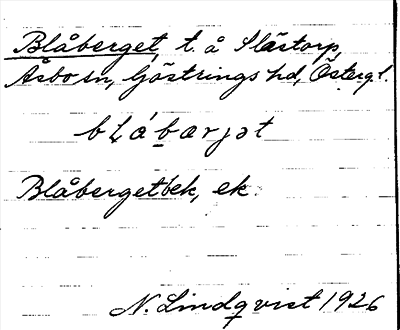 Blåberget, t. å Slästorp,
Åsbo sn, Göstrings hd, Östergl.
bḷábærjət
Blåbergetbek, ek.
N. Lindqvist 1926